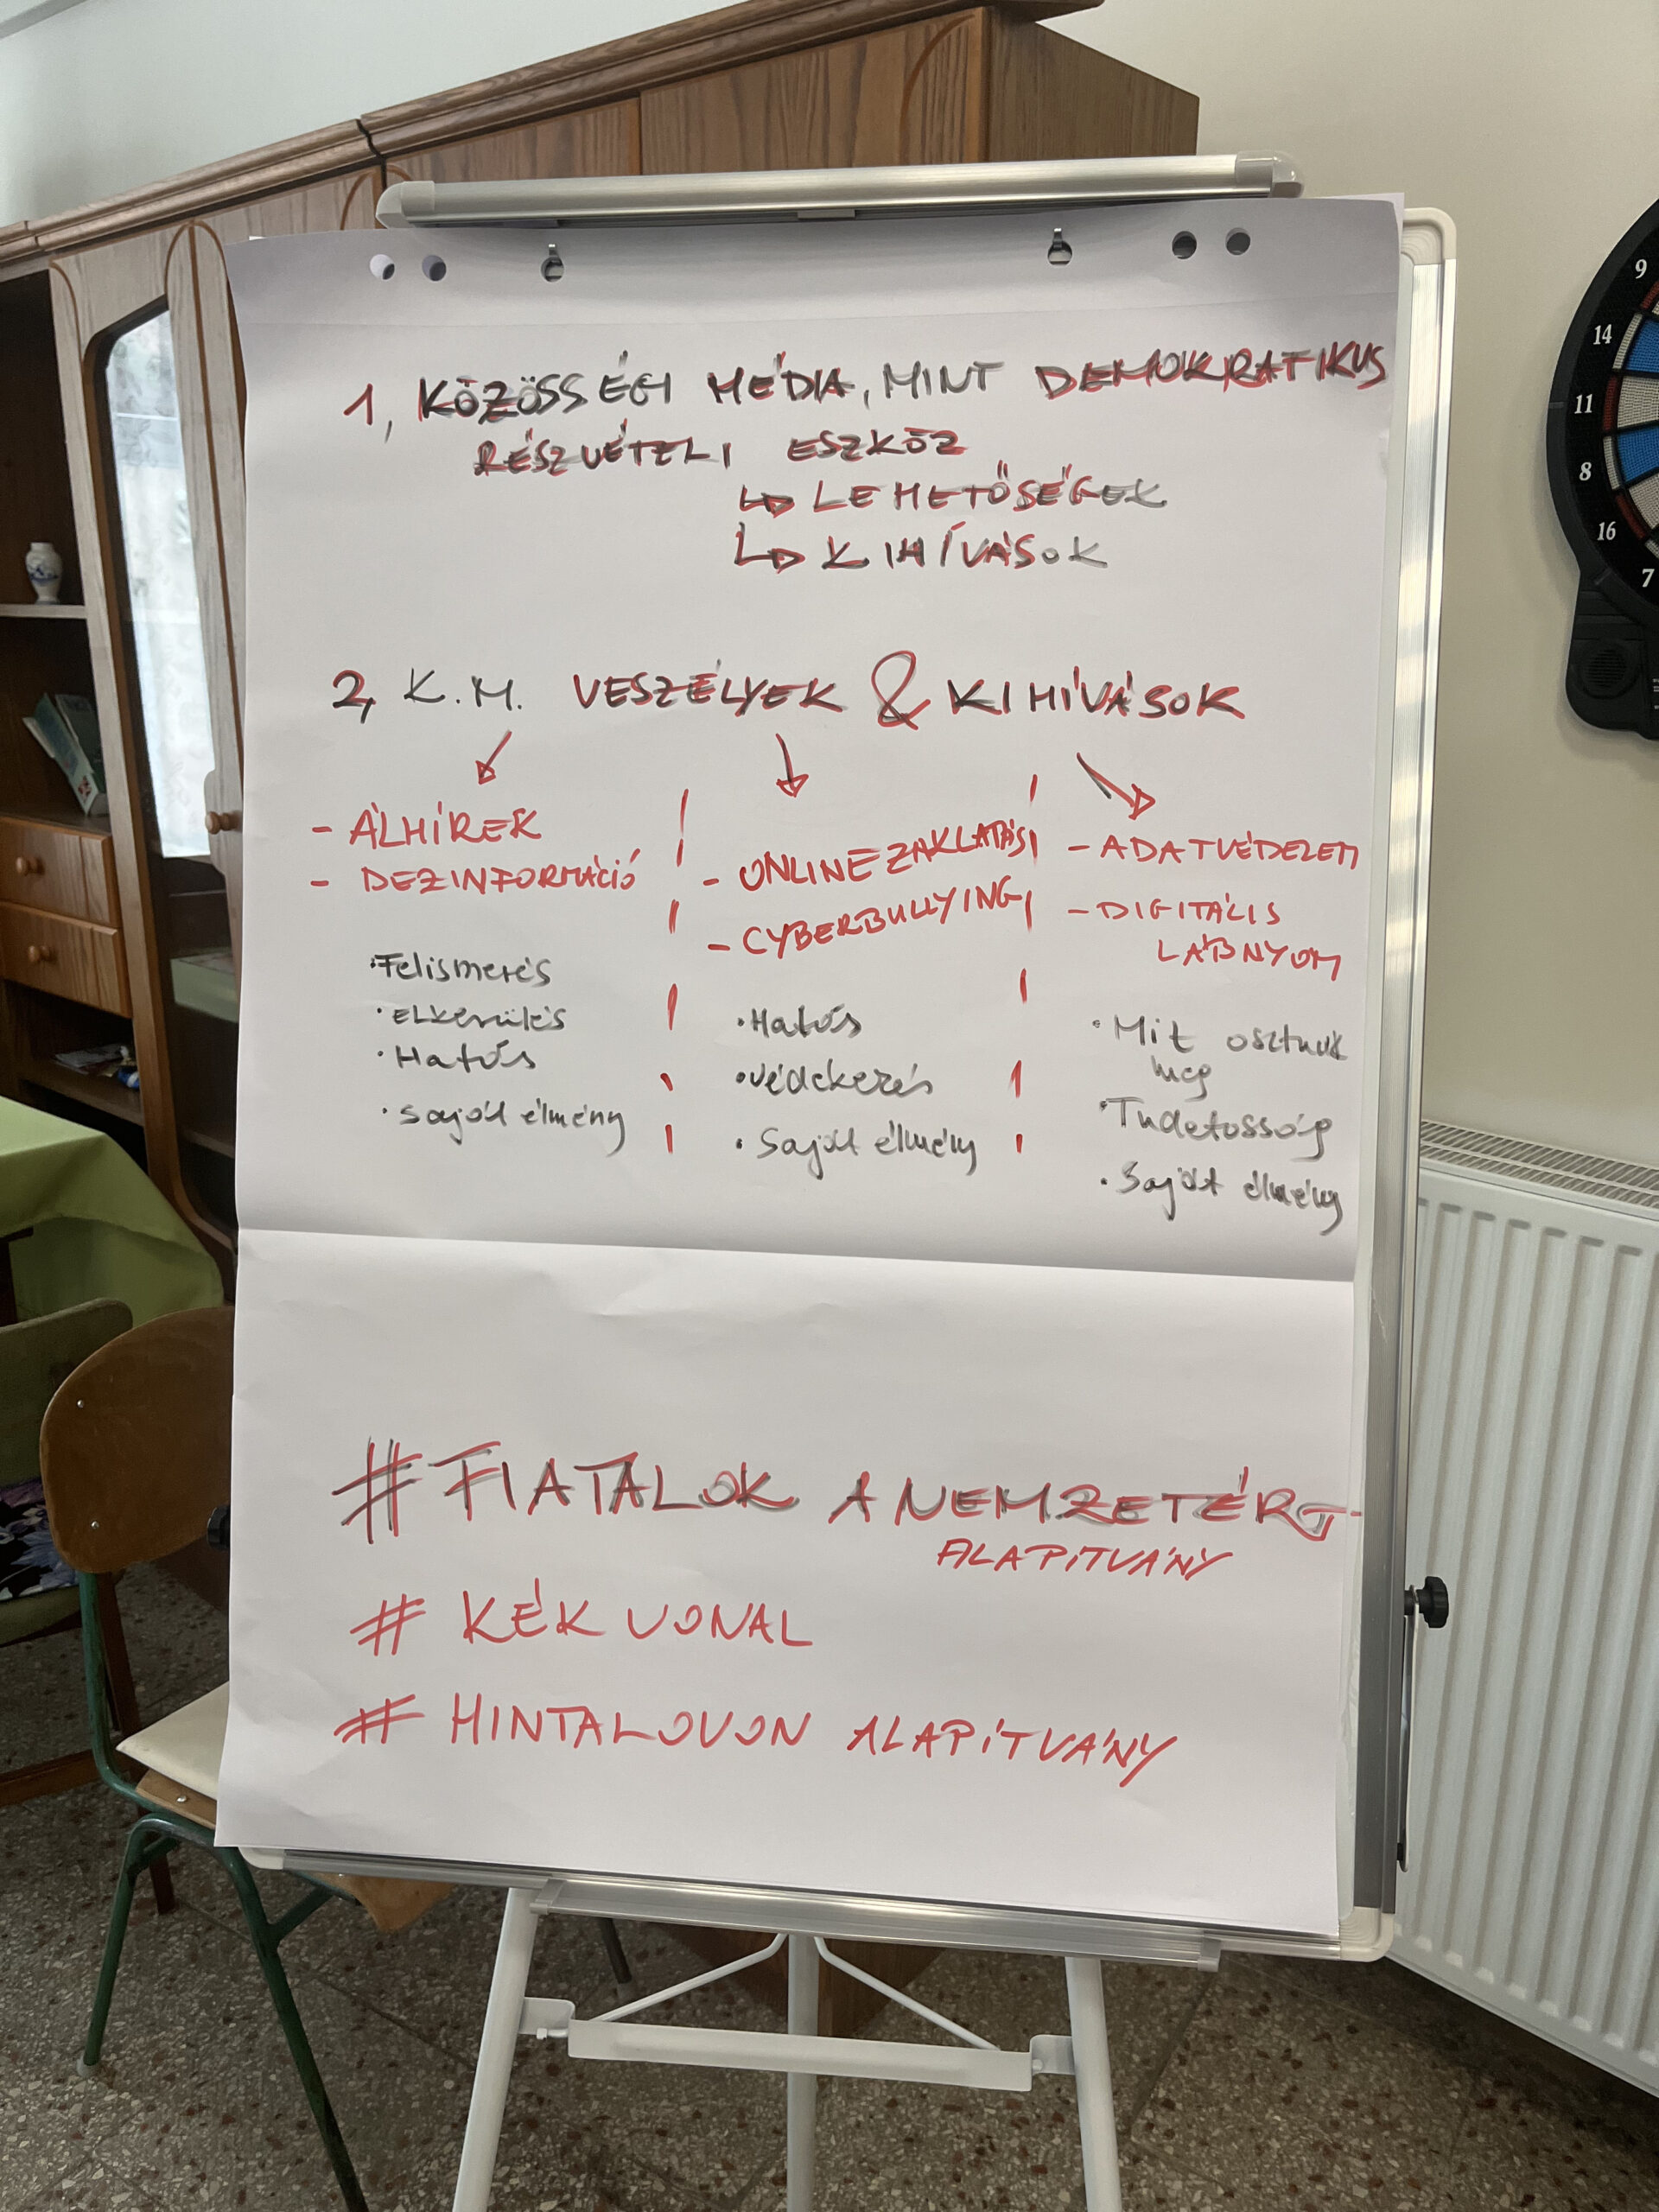 1, KÖZÖSSÉGI MÉDIA, MINT DEMOKRATIKUS
RÉSZVÉTELI ESZKÖZ
↳ LEHETŐSÉGEK
↳ KIHÍVÁSOK
2, K.M. VESZÉLYEK & KIHÍVÁSOK
- ÁLHÍREK
- DEZINFORMÁCIÓ
· Felismerés
· ELKERÜLÉS
· Hatás
· saját élmény
- ONLINE ZAKLATÁS
- CYBERBULLYING
· Hatás
· Védekezés
· Saját élmény
- ADATVÉDELEM
- DIGITÁLIS
LÁBNYOM
· Mit osztunk
meg
· Tudatosság
· Saját élmény
# FIATALOK A NEMZETÉRT
ALAPÍTVÁNY
# KÉK VONAL
# HINTALOVON ALAPÍTVÁNY
9
14
11
8
16
7